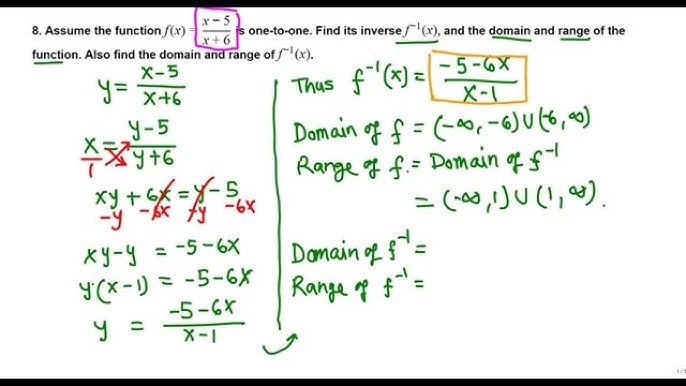 8. Assume the function f(x) = x − 5 / x + 6 is one-to-one. Find its inverse f⁻¹(x), and the domain and range of the
function. Also find the domain and range of f⁻¹(x).
y = x-5 / x+6
x / 1 = y-5 / y+6
xy + 6x = y - 5
-y -6x -y -6x
xy - y = -5 - 6x
y·(x-1) = -5 - 6x
y = -5-6x / x-1
Thus f⁻¹(x) = -5-6x / x-1
Domain of f = (-∞, -6) ∪ (-6, ∞)
Range of f = Domain of f⁻¹
= (-∞, 1) ∪ (1, ∞).
Domain of f⁻¹ =
Range of f⁻¹ =
1 / 1